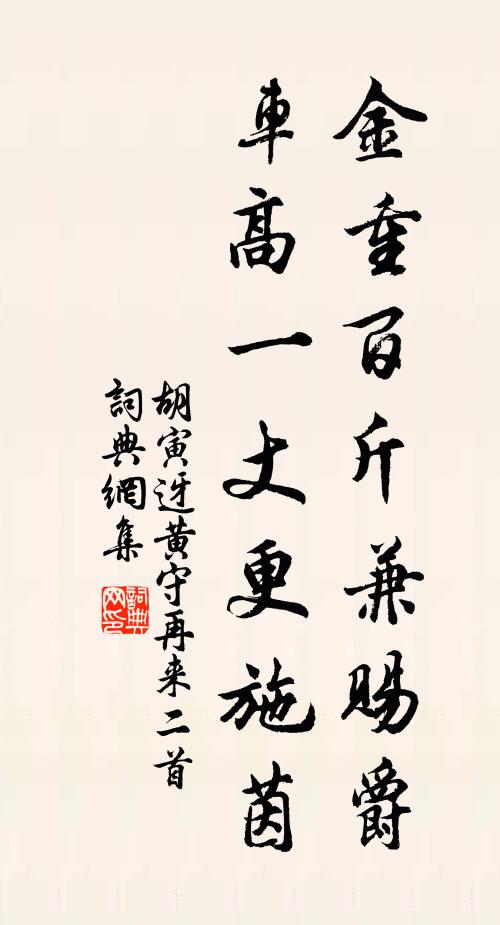 金重百斤兼賜爵
車高一丈更施茵
胡寅迓黄守再来二首
詞典網集
詞典网印